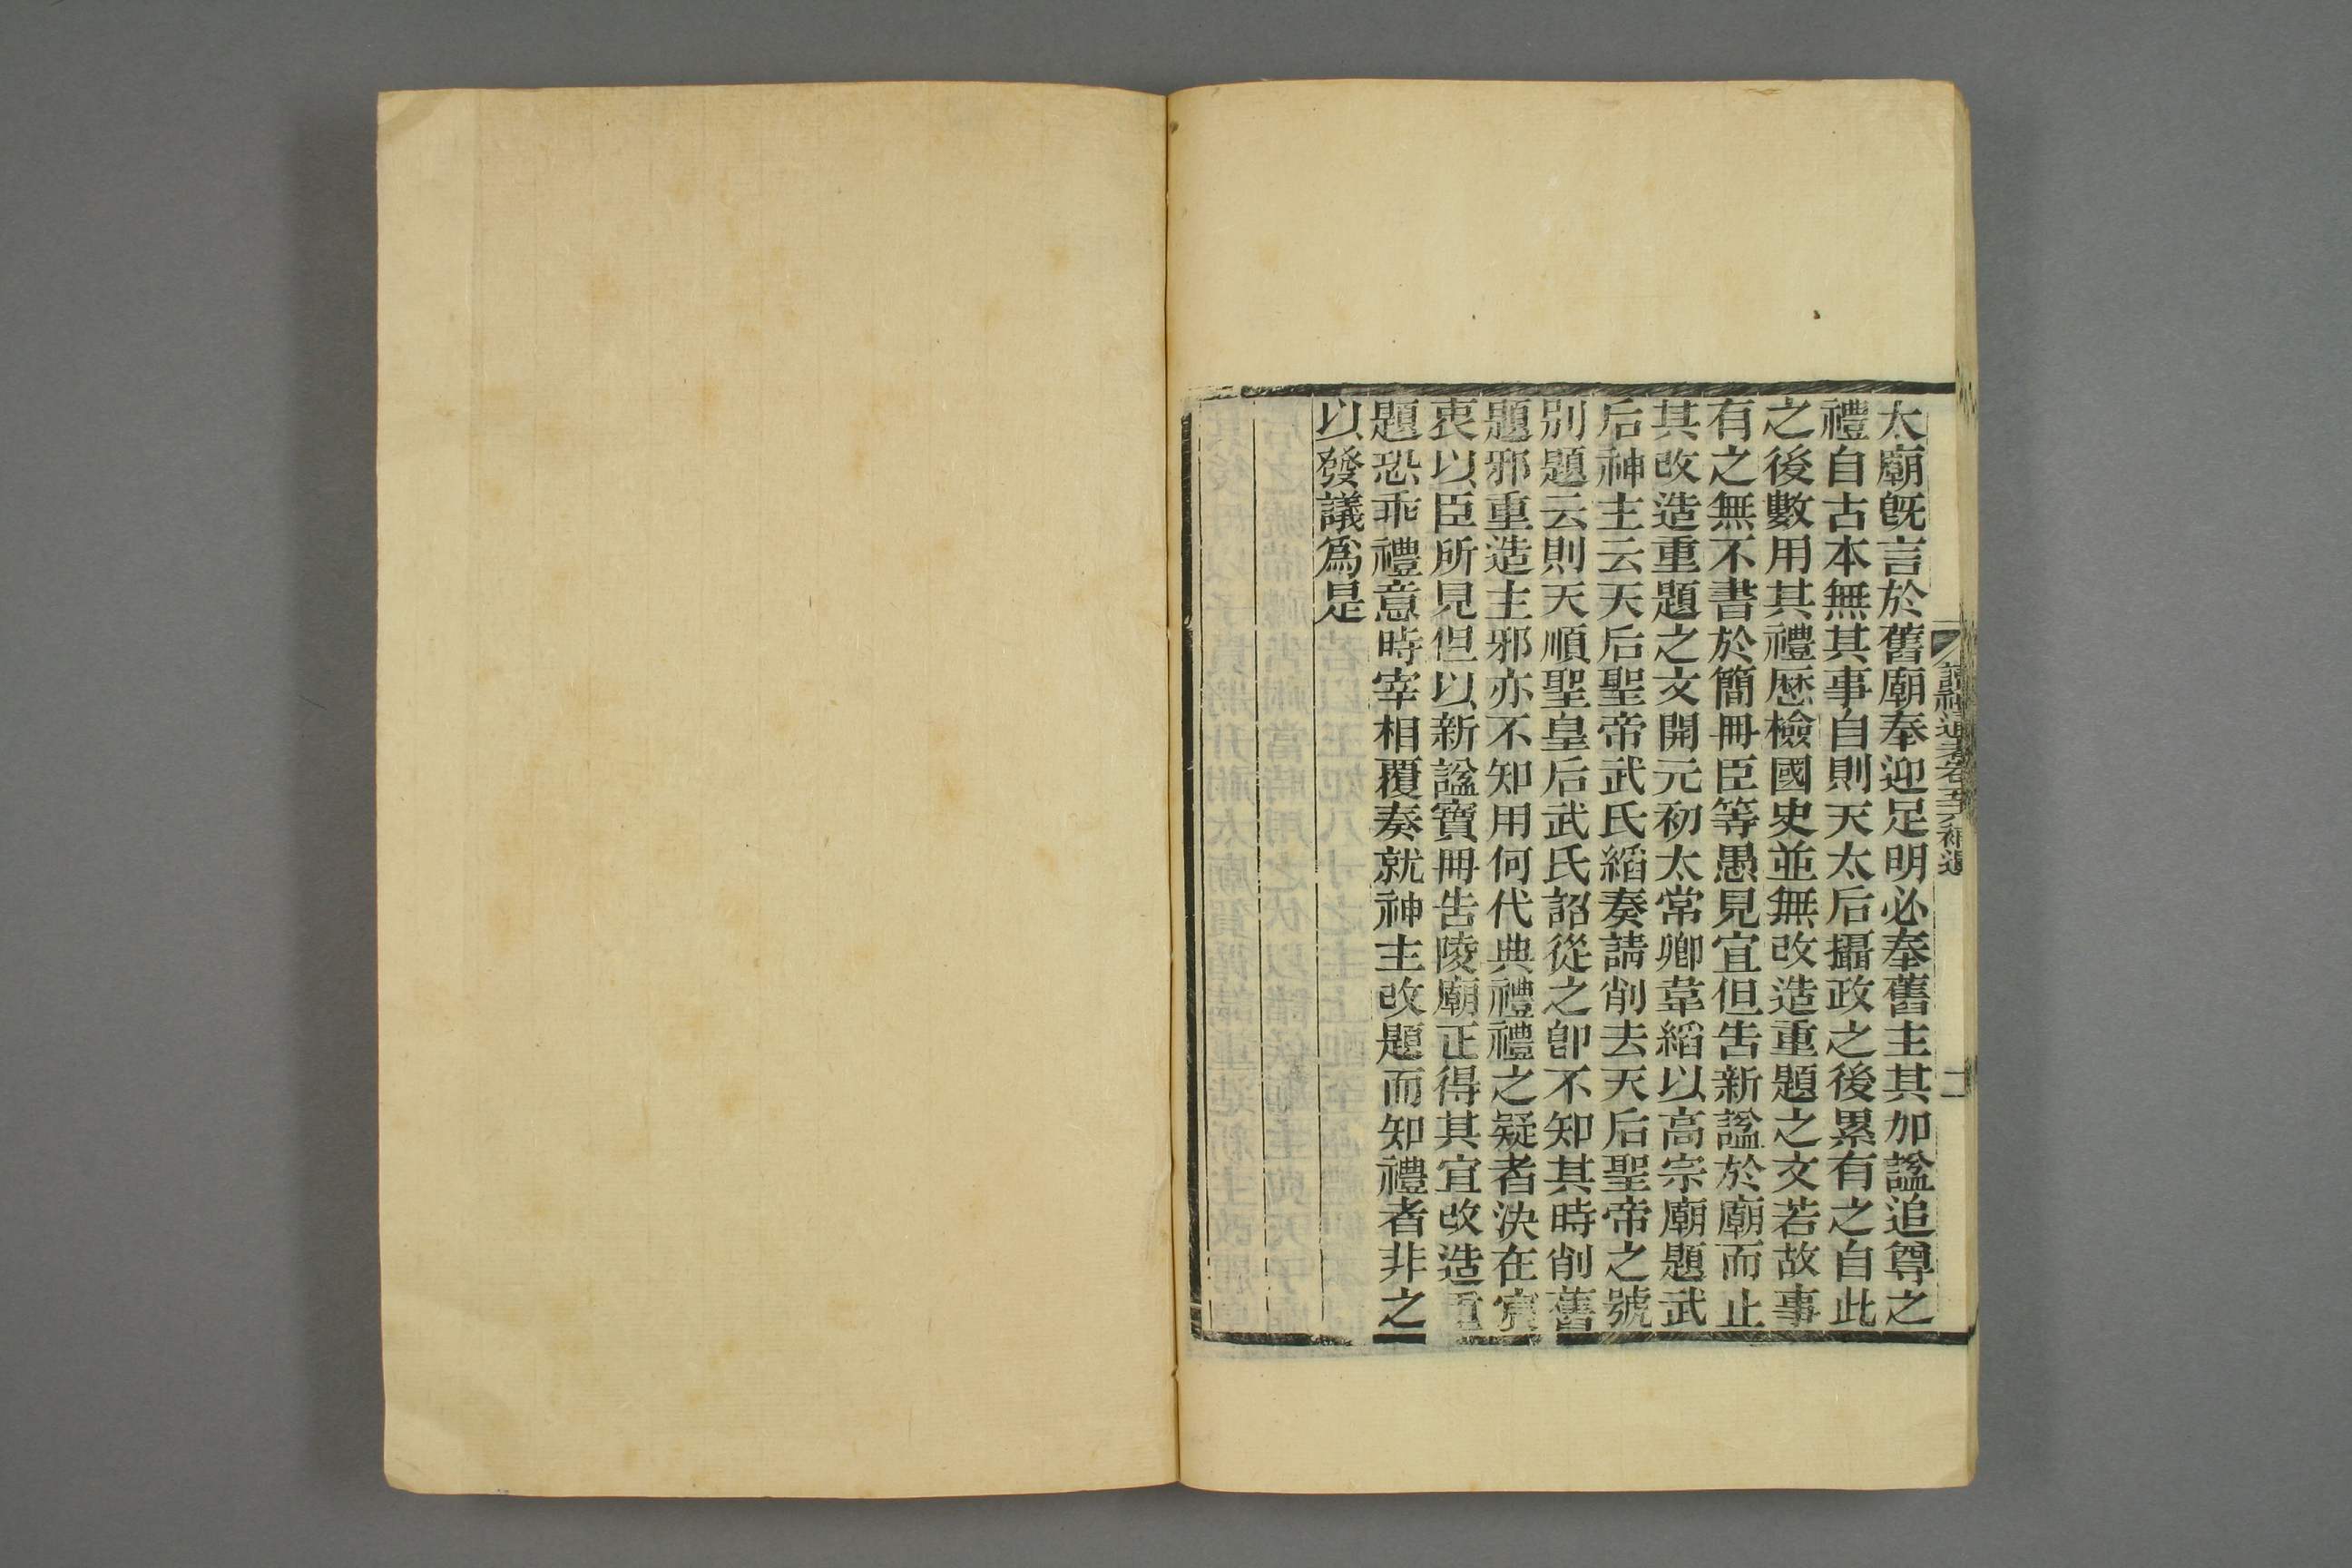 太廟旣言於舊廟奉迎足明必奉舊主其加諡追尊之
禮自古本無其事自則天太后攝政之後累有之自此
之後數用其禮歷檢國史並無改造重題之文若故事
有之無不書於簡冊臣等愚見宜但告新諡於廟而止
其改造重題之文開元初太常卿韋縚以高宗廟題武
后神主云天后聖帝武氏縚奏請削去天后聖帝之號
別題云則天順聖皇后武氏詔從之卽不知其時削舊
題邪重造主邪亦不知用何代典禮禮之疑者決在宸
衷以臣所見但以新諡寶冊告陵廟正得其宜改造重
題恐乖禮意時宰相覆奏就神主改題而知禮者非之
以發議爲是
讀禮通考卷五十六補遺
二